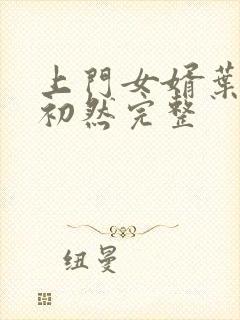 上門女婿葉
初然完整
纽曼